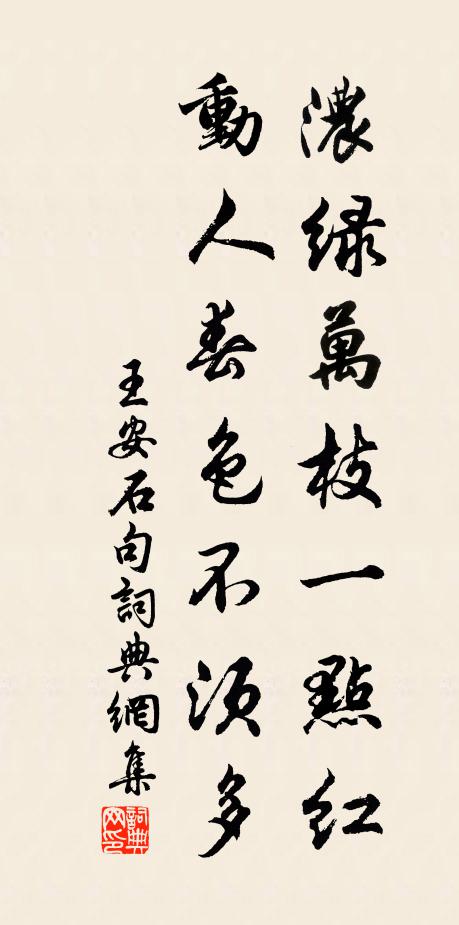 濃緑萬枝一點紅
動人春色不須多
王安石句詞典網集
詞典网印